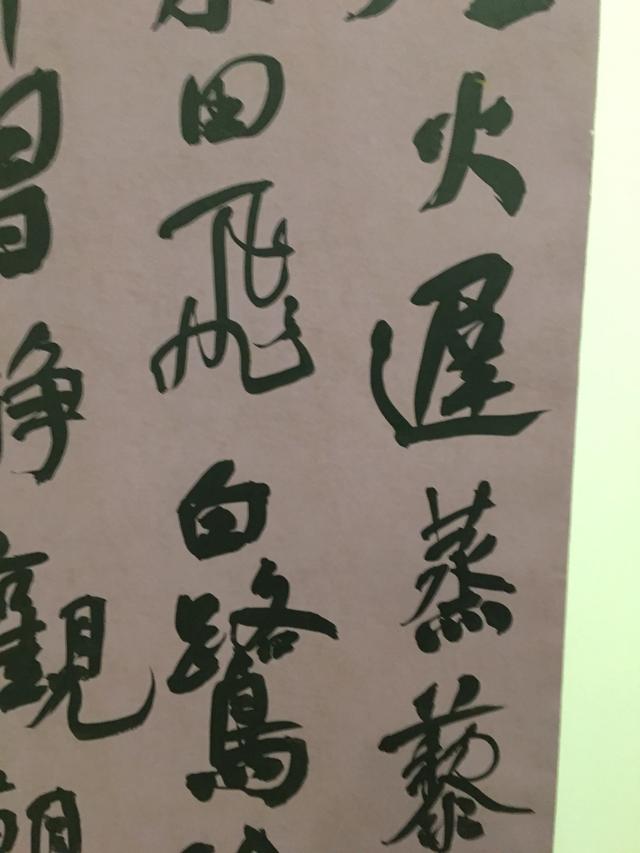 火遲蒸藜
田飛白鷺
習静觀朝